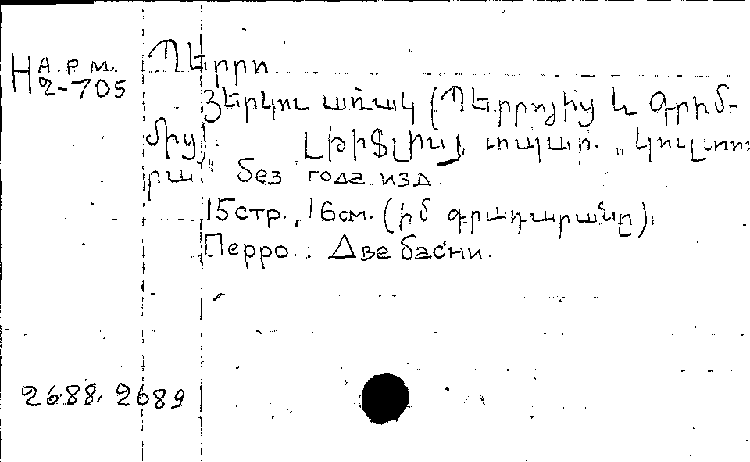 Н А.Р.М. Պերրո
2-705
Երկու առակ (Պերրոյից և Գրիմ-
մից). [Թիֆլիս], տպար. „Կուլտու
րա" без года изд.
15стр., 16см. (իմ գրադարանը).
Перро. Две басни.
2688. 2689